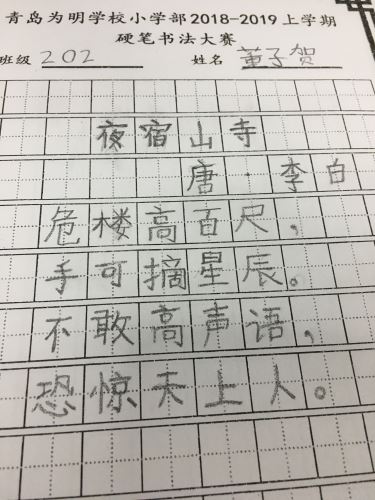 青岛为明学校小学部2018-2019上学期
硬笔书法大赛
班级 202 姓名 董子贺
夜宿山寺
唐·李白
危楼高百尺，
手可摘星辰。
不敢高声语，
恐惊天上人。